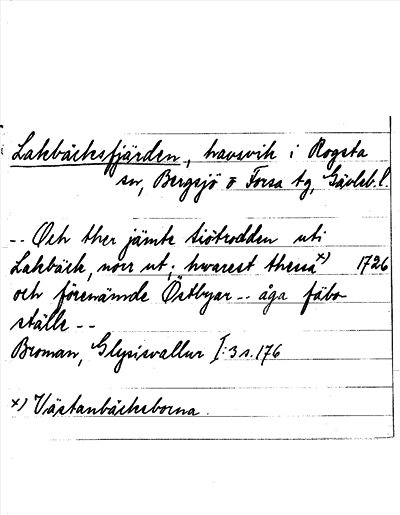 Lakbäcksfjärden, havsvik i Rogsta
sn, Bergsjö o Forsa tg, Gävleb. l.
-- Och ther jämte siötrodden uti
Lakbäck, norr ut; hwarest thessa x) 1726
och förenämde Östbyar -- åga fäbo-
ställe --
Broman, Glysisvallur I:3 s. 176
x) Västanbäcksborna.